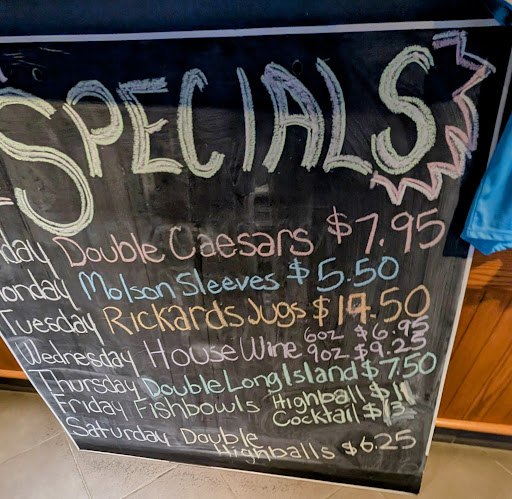 SPECIALS
day Double Caesars $7.95
onday Molson Sleeves $5.50
Tuesday Rickards Jugs $19.50
Wednesday House Wine 6oz $6.95
9oz $9.25
Thursday Double Long Island $7.50
Friday Fishbowls Highball $11
Cocktail $13
Saturday Double
Highballs $6.25